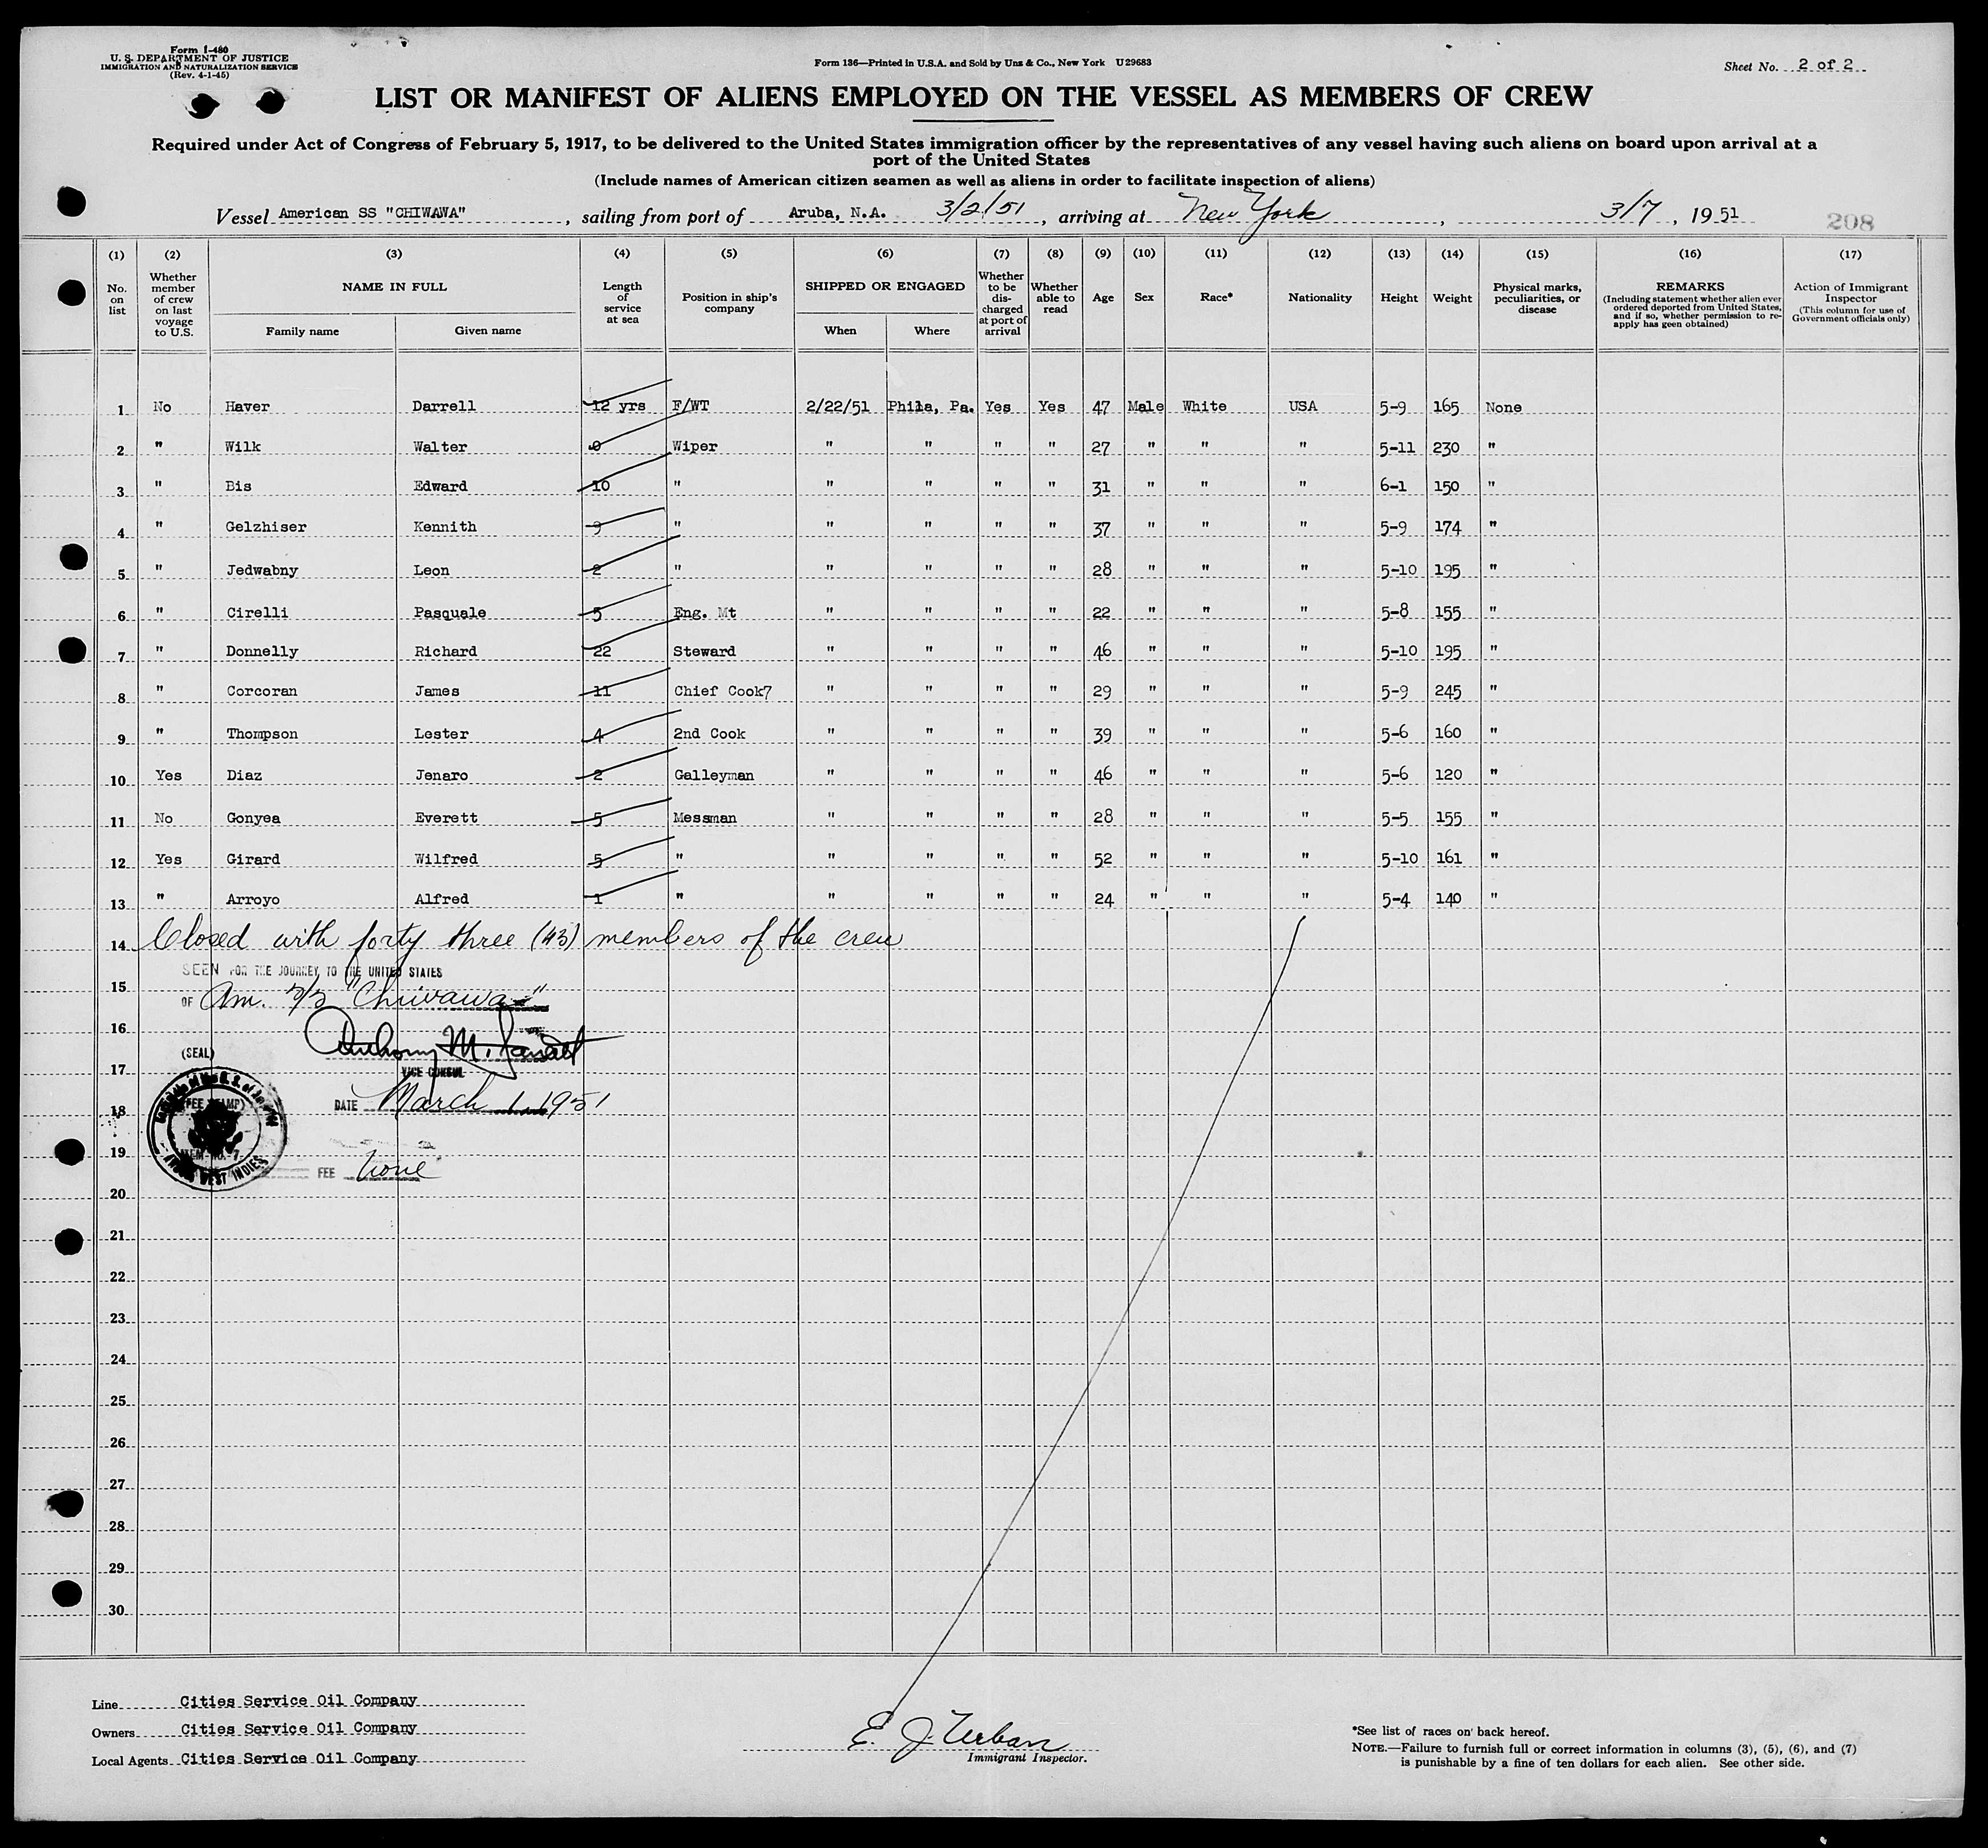 Form I-480
U. S. DEPARTMENT OF JUSTICE
IMMIGRATION AND NATURALIZATION SERVICE
(Rev. 4-1-45)
Form 136—Printed in U.S.A. and Sold by Unz & Co., New York U 29683
Sheet No. 2 of 2
LIST OR MANIFEST OF ALIENS EMPLOYED ON THE VESSEL AS MEMBERS OF CREW
Required under Act of Congress of February 5, 1917, to be delivered to the United States immigration officer by the representatives of any vessel having such aliens on board upon arrival at a
port of the United States
(Include names of American citizen seamen as well as aliens in order to facilitate inspection of aliens)
Vessel American SS "CHIWAWA", sailing from port of Aruba, N.A. 3/2/51, arriving at New York, 3/7, 1951
208
(1) (2) (3) (4) (5) (6) (7) (8) (9) (10) (11) (12) (13) (14) (15) (16) (17)
No. on list
Whether member of crew on last voyage to U.S.
NAME IN FULL
Family name
Given name
Length of service at sea
Position in ship's company
SHIPPED OR ENGAGED
When
Where
Whether to be discharged at port of arrival
Whether able to read
Age
Sex
Race*
Nationality
Height
Weight
Physical marks, peculiarities, or disease
REMARKS
(Including statement whether alien ever ordered deported from United States, and if so, whether permission to re-apply has geen obtained)
Action of Immigrant Inspector
(This column for use of Government officials only)
1 No Haver Darrell 12 yrs F/WT 2/22/51 Phila, Pa. Yes Yes 47 Male White USA 5-9 165 None
2 " Wilk Walter Wiper " " " " 27 " " " 5-11 230 "
3 " Bis Edward 10 " " " " " 31 " " " 6-1 150 "
4 " Gelzhiser Kennith 9 " " " " " 37 " " " 5-9 174 "
5 " Jedwabny Leon 2 " " " " " 28 " " " 5-10 195 "
6 " Cirelli Pasquale 5 Eng. Mt " " " " 22 " " " 5-8 155 "
7 " Donnelly Richard 22 Steward " " " " 46 " " " 5-10 195 "
8 " Corcoran James 11 Chief Cook7 " " " " 29 " " " 5-9 245 "
9 " Thompson Lester 4 2nd Cook " " " " 39 " " " 5-6 160 "
10 Yes Diaz Jenaro 2 Galleyman " " " " 46 " " " 5-6 120 "
11 No Gonyea Everett 5 Messman " " " " 28 " " " 5-5 155 "
12 Yes Girard Wilfred 5 " " " " " 52 " " " 5-10 161 "
13 " Arroyo Alfred 1 " " " " " 24 " " " 5-4 140 "
14 Closed with forty three (43) members of the crew
SEEN FOR THE JOURNEY TO THE UNITED STATES
15 OF Am. S/S "Chiwawa"
16 Anthony M.
(SEAL)
17 VICE CONSUL
18 DATE March 1, 1951
(FEE STAMP)
19 WEST INDIES
FEE None
20
21
22
23
24
25
26
27
28
29
30
Line Cities Service Oil Company
Owners Cities Service Oil Company
Local Agents Cities Service Oil Company
E. J. Urban
Immigrant Inspector.
*See list of races on back hereof.
NOTE.—Failure to furnish full or correct information in columns (3), (5), (6), and (7)
is punishable by a fine of ten dollars for each alien. See other side.